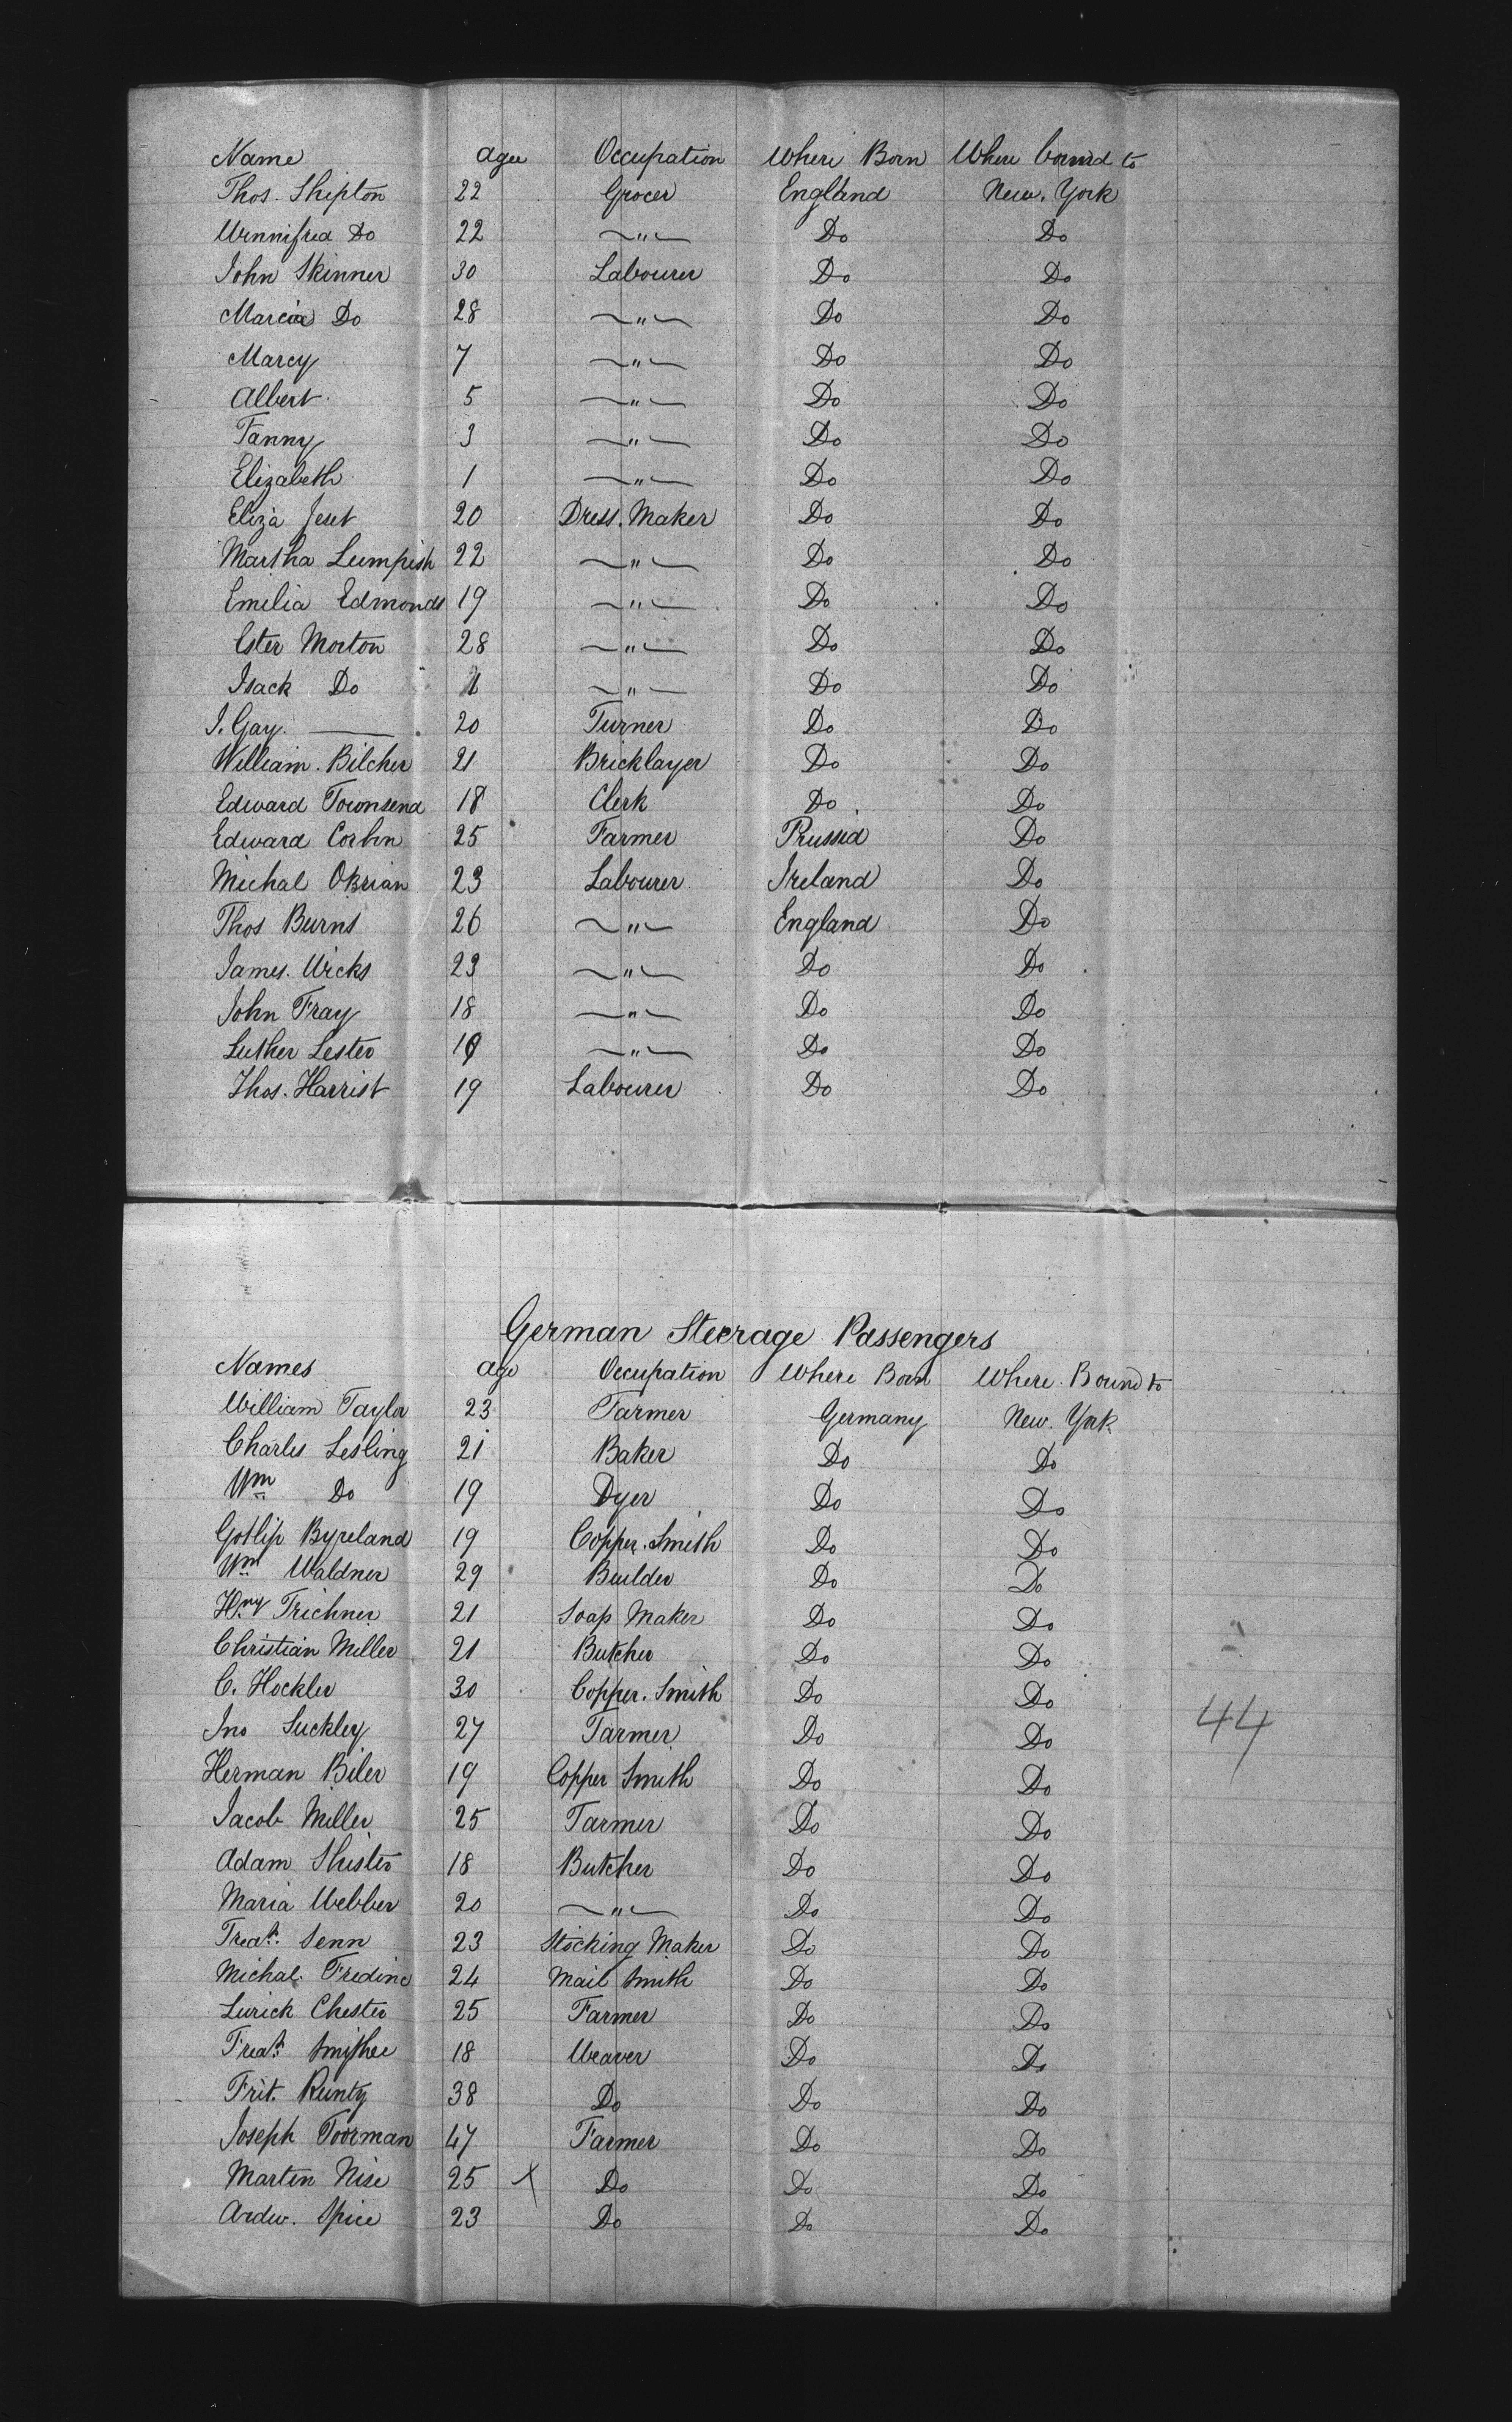 Name Age Occupation Where Born Where bound to
Thos. Shipton 22 Grocer England New. York
Winnifred Do 22 〃 Do Do
John Skinner 30 Labourer Do Do
Maria Do 28 〃 Do Do
Marcy 7 〃 Do Do
Albert 5 〃 Do Do
Fanny 3 〃 Do Do
Elizabeth 1 〃 Do Do
Eliza Jest 20 Dress. Maker Do Do
Martha Lumpish 22 〃 Do Do
Emilia Edmonds 19 〃 Do Do
Ester Morton 28 〃 Do Do
Isack Do 1 〃 Do Do
J. Gay. 20 Turner Do Do
William. Bilcher 21 Bricklayer Do Do
Edward Townsend 18 Clerk Do Do
Edward Corbin 25 Farmer Prussia Do
Michal OBrian 23 Labourer Ireland Do
Thos Burns 26 〃 England Do
James. Wicks 23 〃 Do Do
John Fray 18 〃 Do Do
Luther Lester 19 〃 Do Do
Thos. Harrist 19 Labourer Do Do
German Steerage Passengers
Names Age Occupation Where Born Where Bound to
William Taylor 23 Farmer Germany New. York
Charles Lesling 21 Baker Do Do
Wm Do 19 Dyer Do Do
Gotlip Byreland 19 Copper. Smith Do Do
Wm Waldner 29 Builder Do Do
Hny Trichner 21 Soap Maker Do Do
Christian Miller 21 Butcher Do Do
C. Hockler 30 Copper. Smith Do Do
Jno Luckley 27 Farmer Do Do
44
Herman Biler 19 Copper Smith Do Do
Jacob Miller 25 Farmer Do Do
Adam Shister 18 Butcher Do Do
Maria Webber 20 〃 Do Do
Fredk. Senn 23 Stocking Maker Do Do
Michal. Fredine 24 Nail Smith Do Do
Lurick Chester 25 Farmer Do Do
Fredk. 18 Weaver Do Do
Frit. Runty 38 Do Do Do
Joseph Toorman 47 Farmer Do Do
Marten Nise 25 X Do Do Do
Ardw. Spice 23 Do Do Do